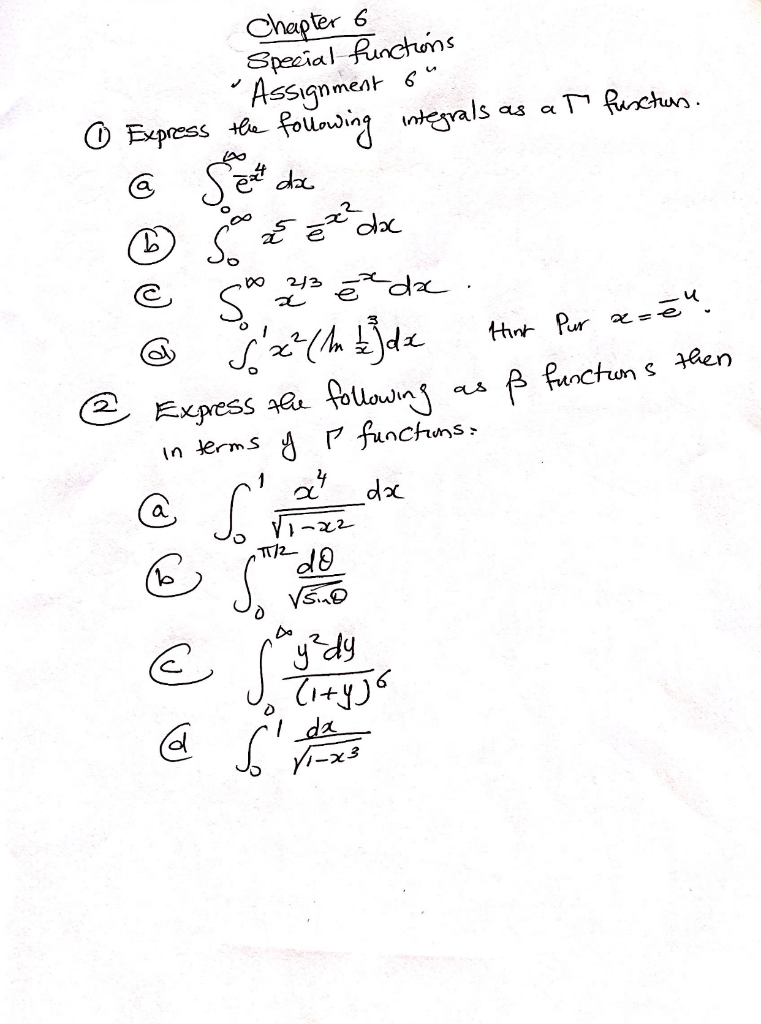 Chapter 6
Special functions
"Assignment 6"
① Express the following integrals as a Γ function.
ⓐ ∫₀^∞ e^{-x^4} dx
ⓑ ∫₀^∞ x^5 e^{-x^2} dx
ⓒ ∫₀^∞ x^{2/3} e^{-x} dx.
ⓓ ∫₀^1 x^2 (ln 1/x)^3 dx Hint Put x = e^{-u}.
② Express the following as β functions then
in terms of Γ functions:
ⓐ ∫₀^1 x^4/√(1-x^2) dx
ⓑ ∫₀^{π/2} dθ/√(sinθ)
ⓒ ∫₀^∞ y^2 dy/(1+y)^6
ⓓ ∫₀^1 dx/√(1-x^3)